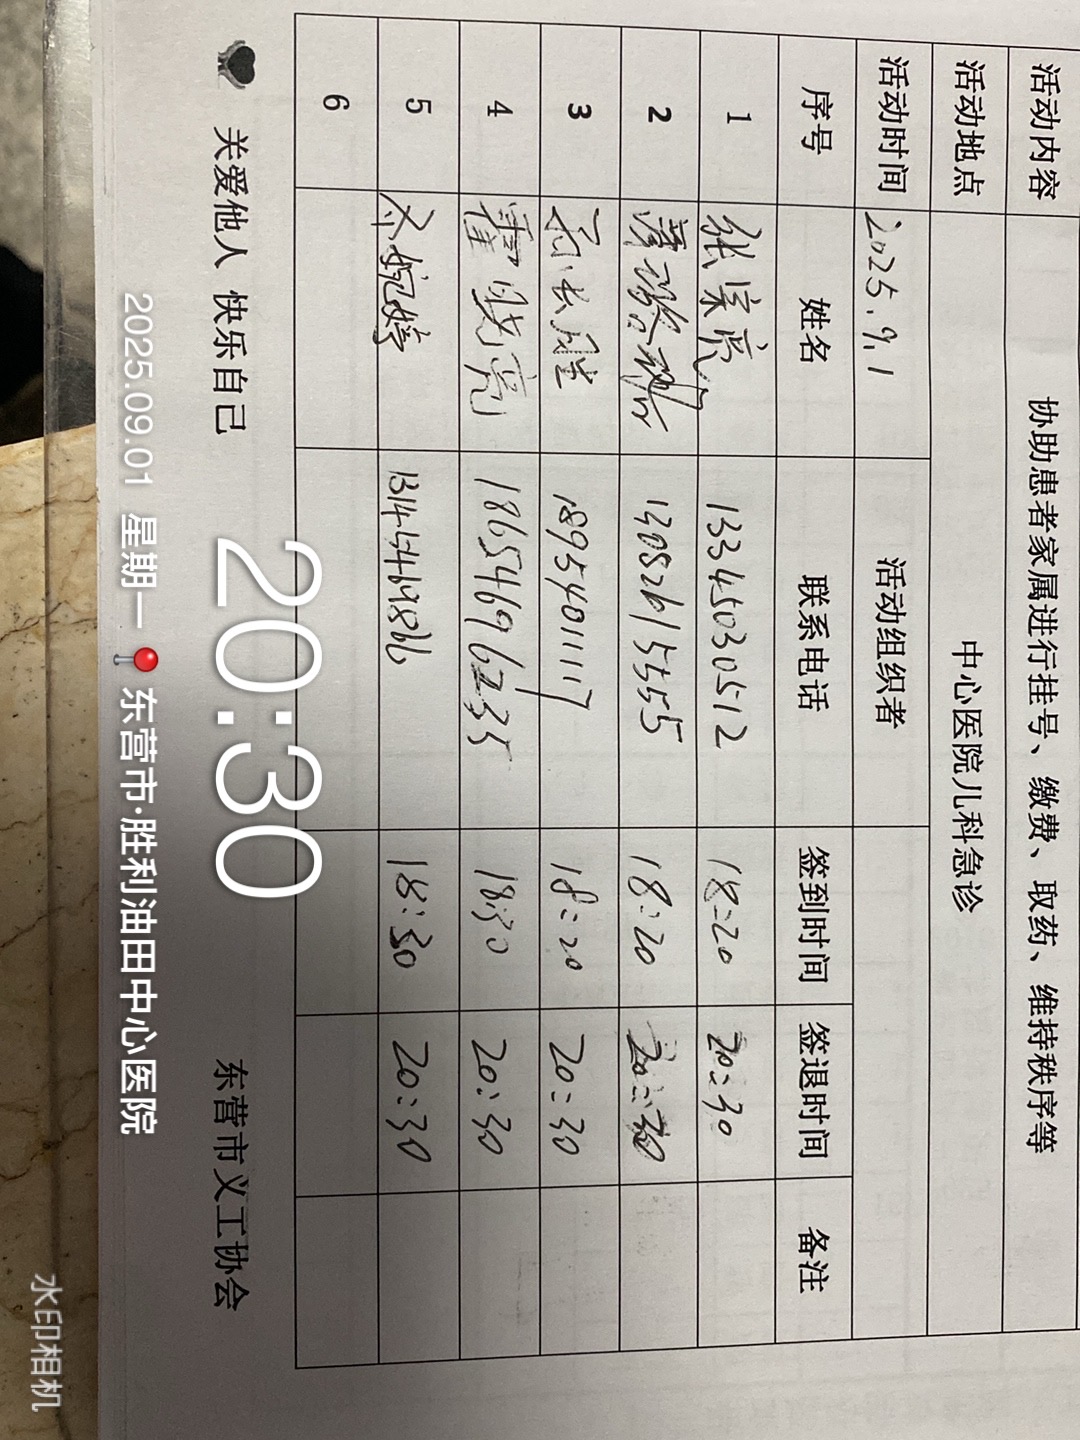 活动内容 协助患者家属进行挂号、缴费、取药、维持秩序等
活动地点 中心医院儿科急诊
活动时间 2025.9.1 活动组织者
序号 姓名 联系电话 签到时间 签退时间 备注
1 张宗亮 13345030512 18:20 20:30
2 13082615555 18:20 20:30
3 长胜 18954011117 18:20 20:30
4 霍晓亮 18654696235 18:30 20:30
5 婉婷 18:30 20:30
6
关爱他人 快乐自己 东营市义工协会
20:30
2025.09.01 星期一 东营市·胜利油田中心医院
水印相机